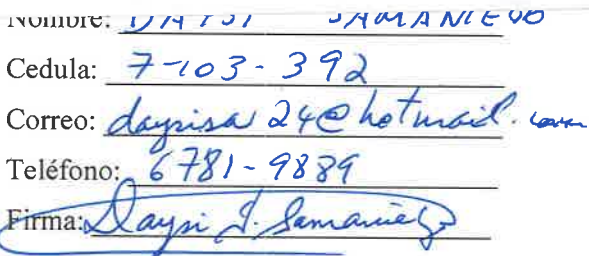 Nombre: DAYSI SAMANIEGO
Cedula: 7-103-392
Correo: dayrisa24@hotmail.com
Teléfono: 6781-9889
Firma: Daysi J. Samaniego